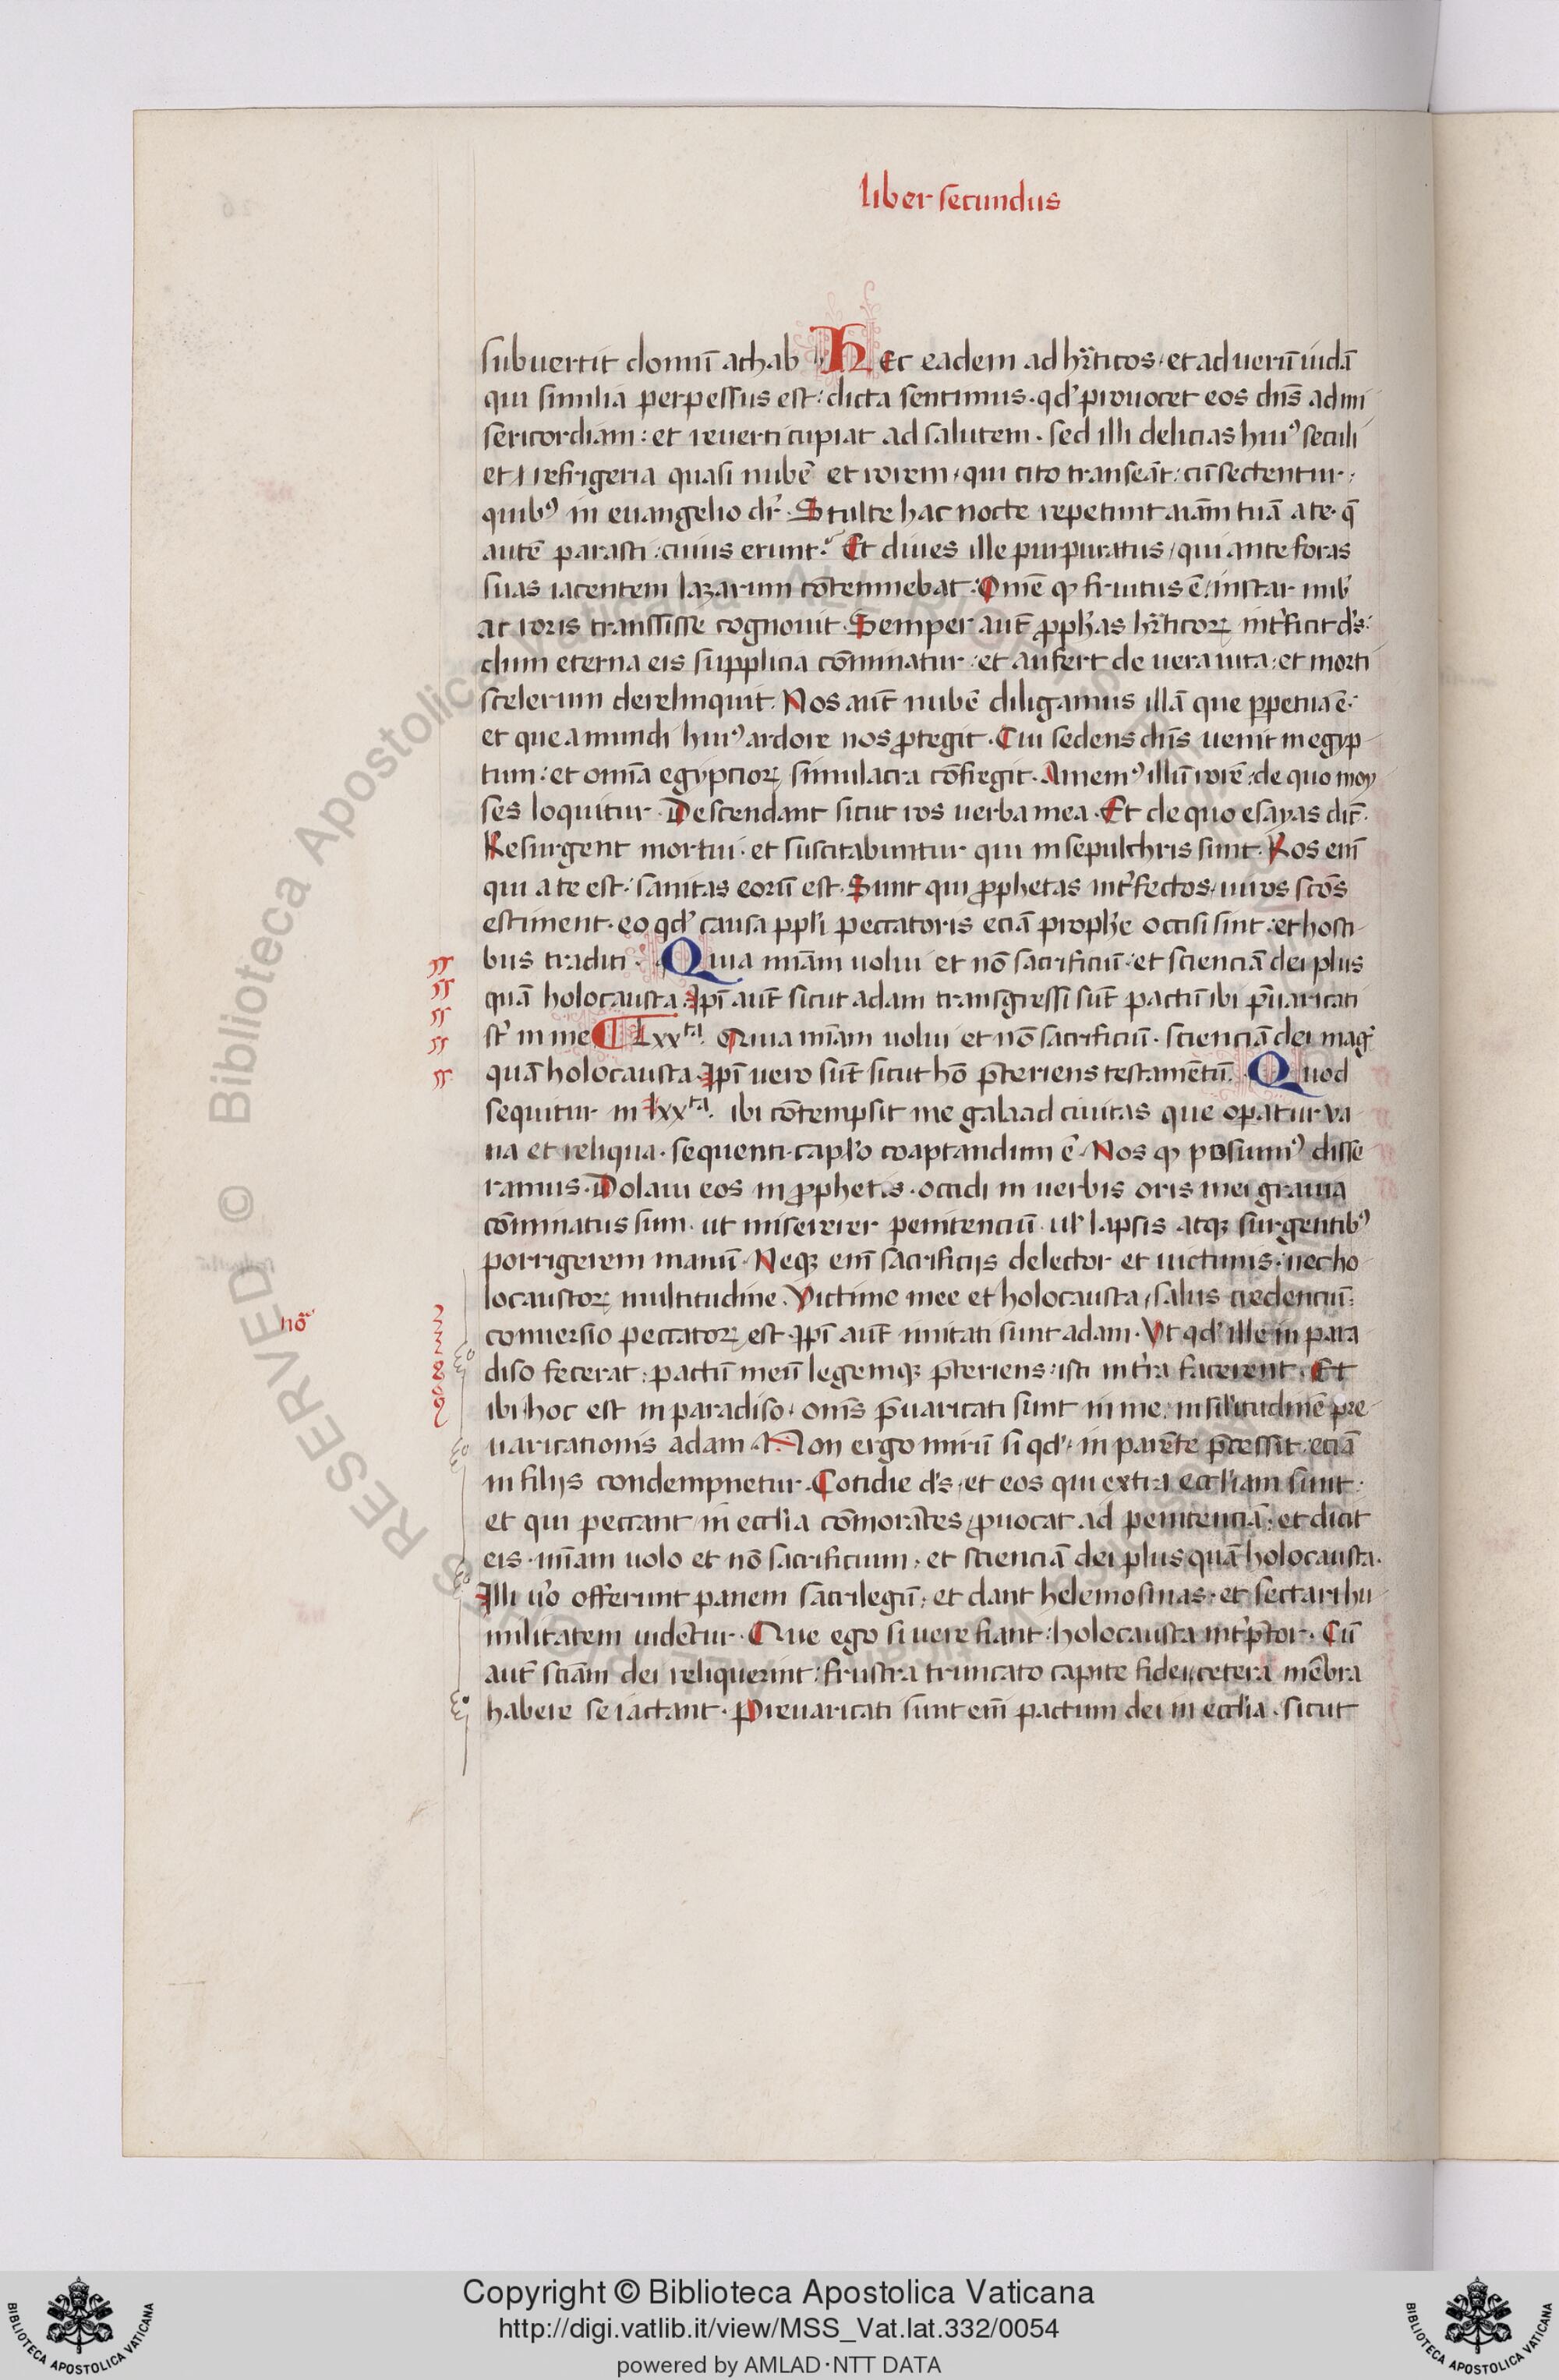 liber secundus
subuertit domū athab Hec eadem ad hr̄ticos · et ad uerū iudā
qui similia perpessus est : dicta sentimus · qd' prouocet eos dn̄s ad mi
sericordiam : et reuerti cupiat ad salutem · sed illi delicias huiꝰ seculi
et refrigeria quasi nubē et rorem / qui cito transeāt : cū sectentur ·
quibꝰ in euangelio dr̄ · Stulte hac nocte repetunt aīam tuā a te · q̄
autē parasti : cuius erunt · Et diues ille purpuratus / qui ante foras
suas iacentem lazarum cōtemnebat : Omē qͦ fruitus ē / instar nub'
ac roris transsisse cognouit · Semper aut̄ ꝓph'as hr̄ticoꝝ int'ficit d's :
dum eterna eis supplicia cōminatur : et aufert de uera uita : et morti
scelerum derelinquit · Nos aut̄ nubē diligamus illā que ꝑpetua ē :
et que a mundi huiꝰ ardore nos ꝓtegit · Cui sedens dn̄s uenit in egyp
tum : et omīa egyptioꝝ simulacra cōfregit · Amemꝰ illū rorē : de quo moy
ses loquitur · Descendant sicut ros uerba mea · Et de quo esayas dic̄ ·
Resurgent mortui · et suscitabuntur qui in sepulchris sunt · Ros eni̅
qui a te est : sanitas eorū est · Sunt qui ꝓphetas int'fectos / uiros sc̄os
estiment · eo qd' causa ppl'i peccatoris eciā proph'e occisi sint : et hosti
bus traditi · Quia mīam uolui et nō sacrificiū · et scienciā dei plus
quā holocausta · Ipī aut̄ sicut adam transgressi sūt pactū ibi p̄uaricati
st̄ in me lxxͭͣ · Quia mīam uolui et nō sacrificiū · scienciā dei mag'
quā holocausta · Ipī uero sūt sicut hō p̄teriens testamētū · Quod
sequitur in lxxͭͣ · ibi cōtempsit me galaad ciuitas que opatur va
na et reliqua · sequenti capl'o coaptandum ē · Nos qͦ posuimꝰ disse
ramus · Dolaui eos in ꝓphetis · occidi in uerbis oris mei grauia
cōminatus sum · ut misererer penitenciū · ul' lapsis atqꝫ surgentibꝰ
porrigerem manū · Neqꝫ eni̅ sacrificijs delector et uictimis · nec ho
locaustoꝝ multitudine · Victime mee et holocausta / salus credenciū :
conuersio peccatoꝝ est · Ipī aut̄ imitati sunt adam · Vt qd' ille in para
nō
diso fecerat : pactū meū legemqꝫ p̄teriens : isti in t'ra facerent · Et
ibi · hoc est in paradiso · om̄s p̄uaricati sunt in me · in sil'itudinē pre
uaricationis adam · Non ergo mirū si qd' in parēte p̄cessit · eciā
in filijs condempnetur · Cotidie d's · et eos qui extra eccl'iam sunt ·
et qui peccant in eccl'ia cōmorātes / ꝓuocat ad penitenciā : et dicit
eis · mīam uolo et nō sacrificium · et scienciā dei plus quā holocausta ·
Illi u'o offerunt panem sacrilegū : et dant helemosinas · et sectari hu
militatem uidētur · Que ego si uere fiant : holocausta int'p̄tor · Cū
aut̄ scīam dei reliquerint : frustra truncato capite fidei / cetera mēbra
habere se iactant · Preuaricati sunt eni̅ pactum dei in eccl'ia · sicut
RESERVED © Biblioteca Apostolica Vaticana
Copyright © Biblioteca Apostolica Vaticana
http://digi.vatlib.it/view/MSS_Vat.lat.332/0054
powered by AMLAD·NTT DATA
BIBLIOTECA APOSTOLICA VATICANA
BIBLIOTECA APOSTOLICA VATICANA